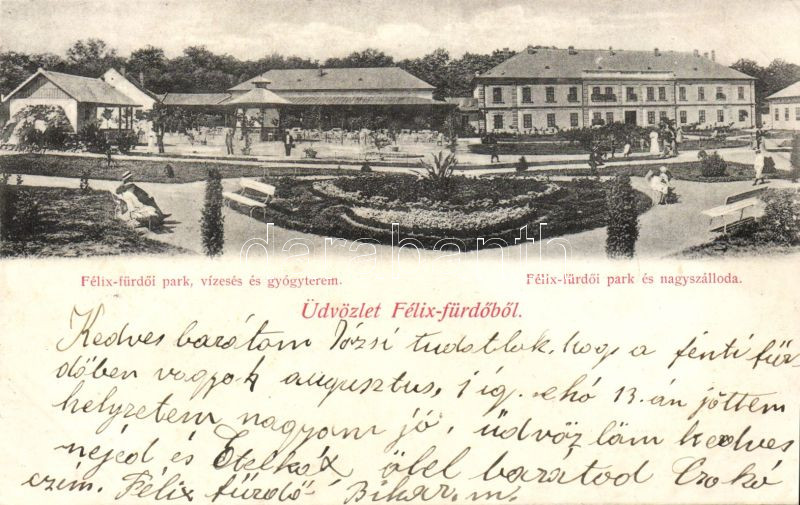 darabanth
Félix-fürdői park, vízesés és gyógyterem.
Félix-fürdői park és nagyszálloda.
Üdvözlet Félix-fürdőből.
Kedves barátom Józsi tudatlak, hogy a fenti für-
dőben vagyok augusztus, 1 ig. e hó 13.-án jöttem
helyzetem nagyon jó, üdvözlöm kedves
nejéd és Etelkát ölel barátod
czím. Félix fürdő- Bihar. m.